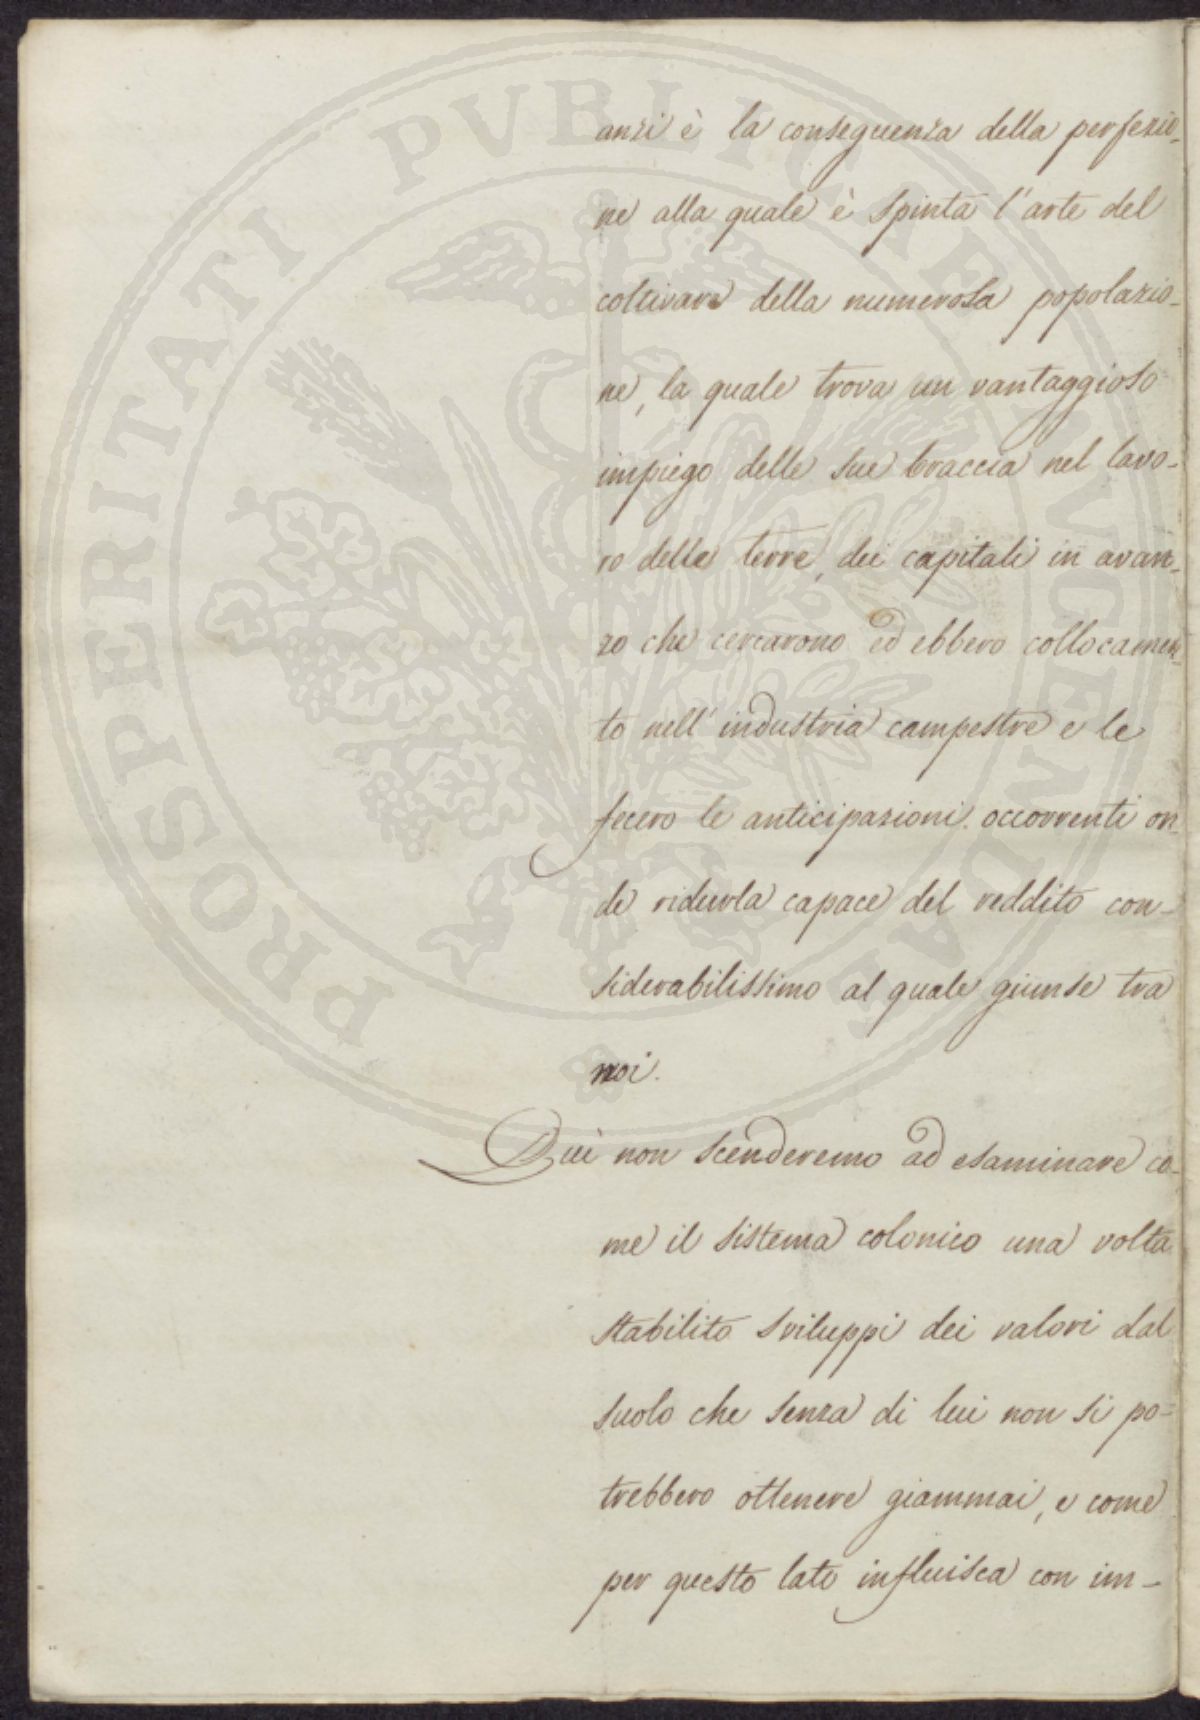 anzi è la conseguenza della perfezio-
ne alla quale è spinta l'arte del
coltivare della numerosa popolazio-
ne, la quale trova un vantaggioso
impiego delle sue braccia nel lavo-
ro delle terre, dei capitali in avan-
zo che cercarono ed ebbero collocamen-
to nell'industria campestre e le
fecero le anticipazioni occorrenti on-
de ridurla capace del reddito con-
siderabilissimo al quale giunse tra
noi.
Quì non scenderemo ad esaminare co-
me il sistema colonico una volta
stabilito sviluppi dei valori dal
suolo che senza di lui non si po-
trebbero ottenere giammai, e come
per questo lato influisca con im-
PROSPERITATI PVBLICAE AVGENDAE